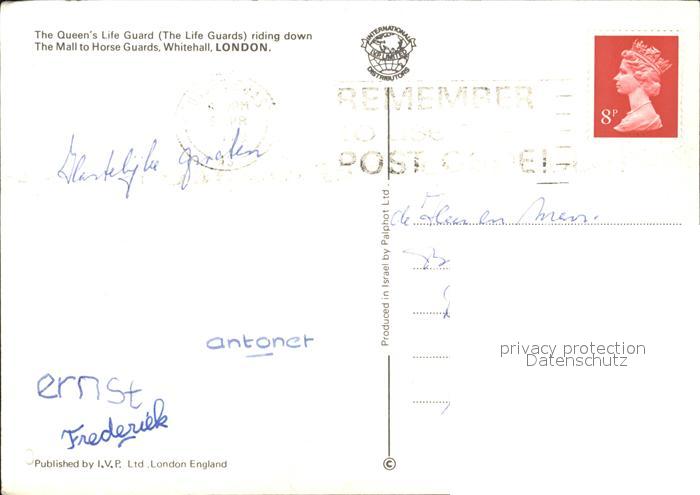 The Queen's Life Guard (The Life Guards) riding down
The Mall to Horse Guards, Whitehall, LONDON.
INTERNATIONAL
I.V.P. LIMITED
DISTRIBUTORS
8P
REMEMBER
TO USE
POST CODE
Hartelijke groeten
de Heer en Mevr.
Produced in Israel by Palphot Ltd.
antonet
ernst
Frederiek
privacy protection
Datenschutz
Published by I.V.P. Ltd. London England
©